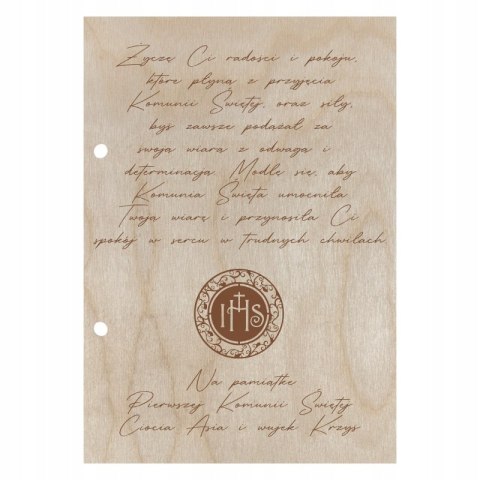 Życzę Ci radości i pokoju,
które płyną z przyjęcia
Komunii Świętej, oraz siły,
byś zawsze podążał za
swoją wiarą z odwagą i
determinacją. Modlę się, aby
Komunia Święta umocniła
Twoją wiarę i przynosiła Ci
spokój w sercu w trudnych chwilach.
IHS
Na pamiątkę
Pierwszej Komunii Świętej
Ciocia Asia i wujek Krzyś